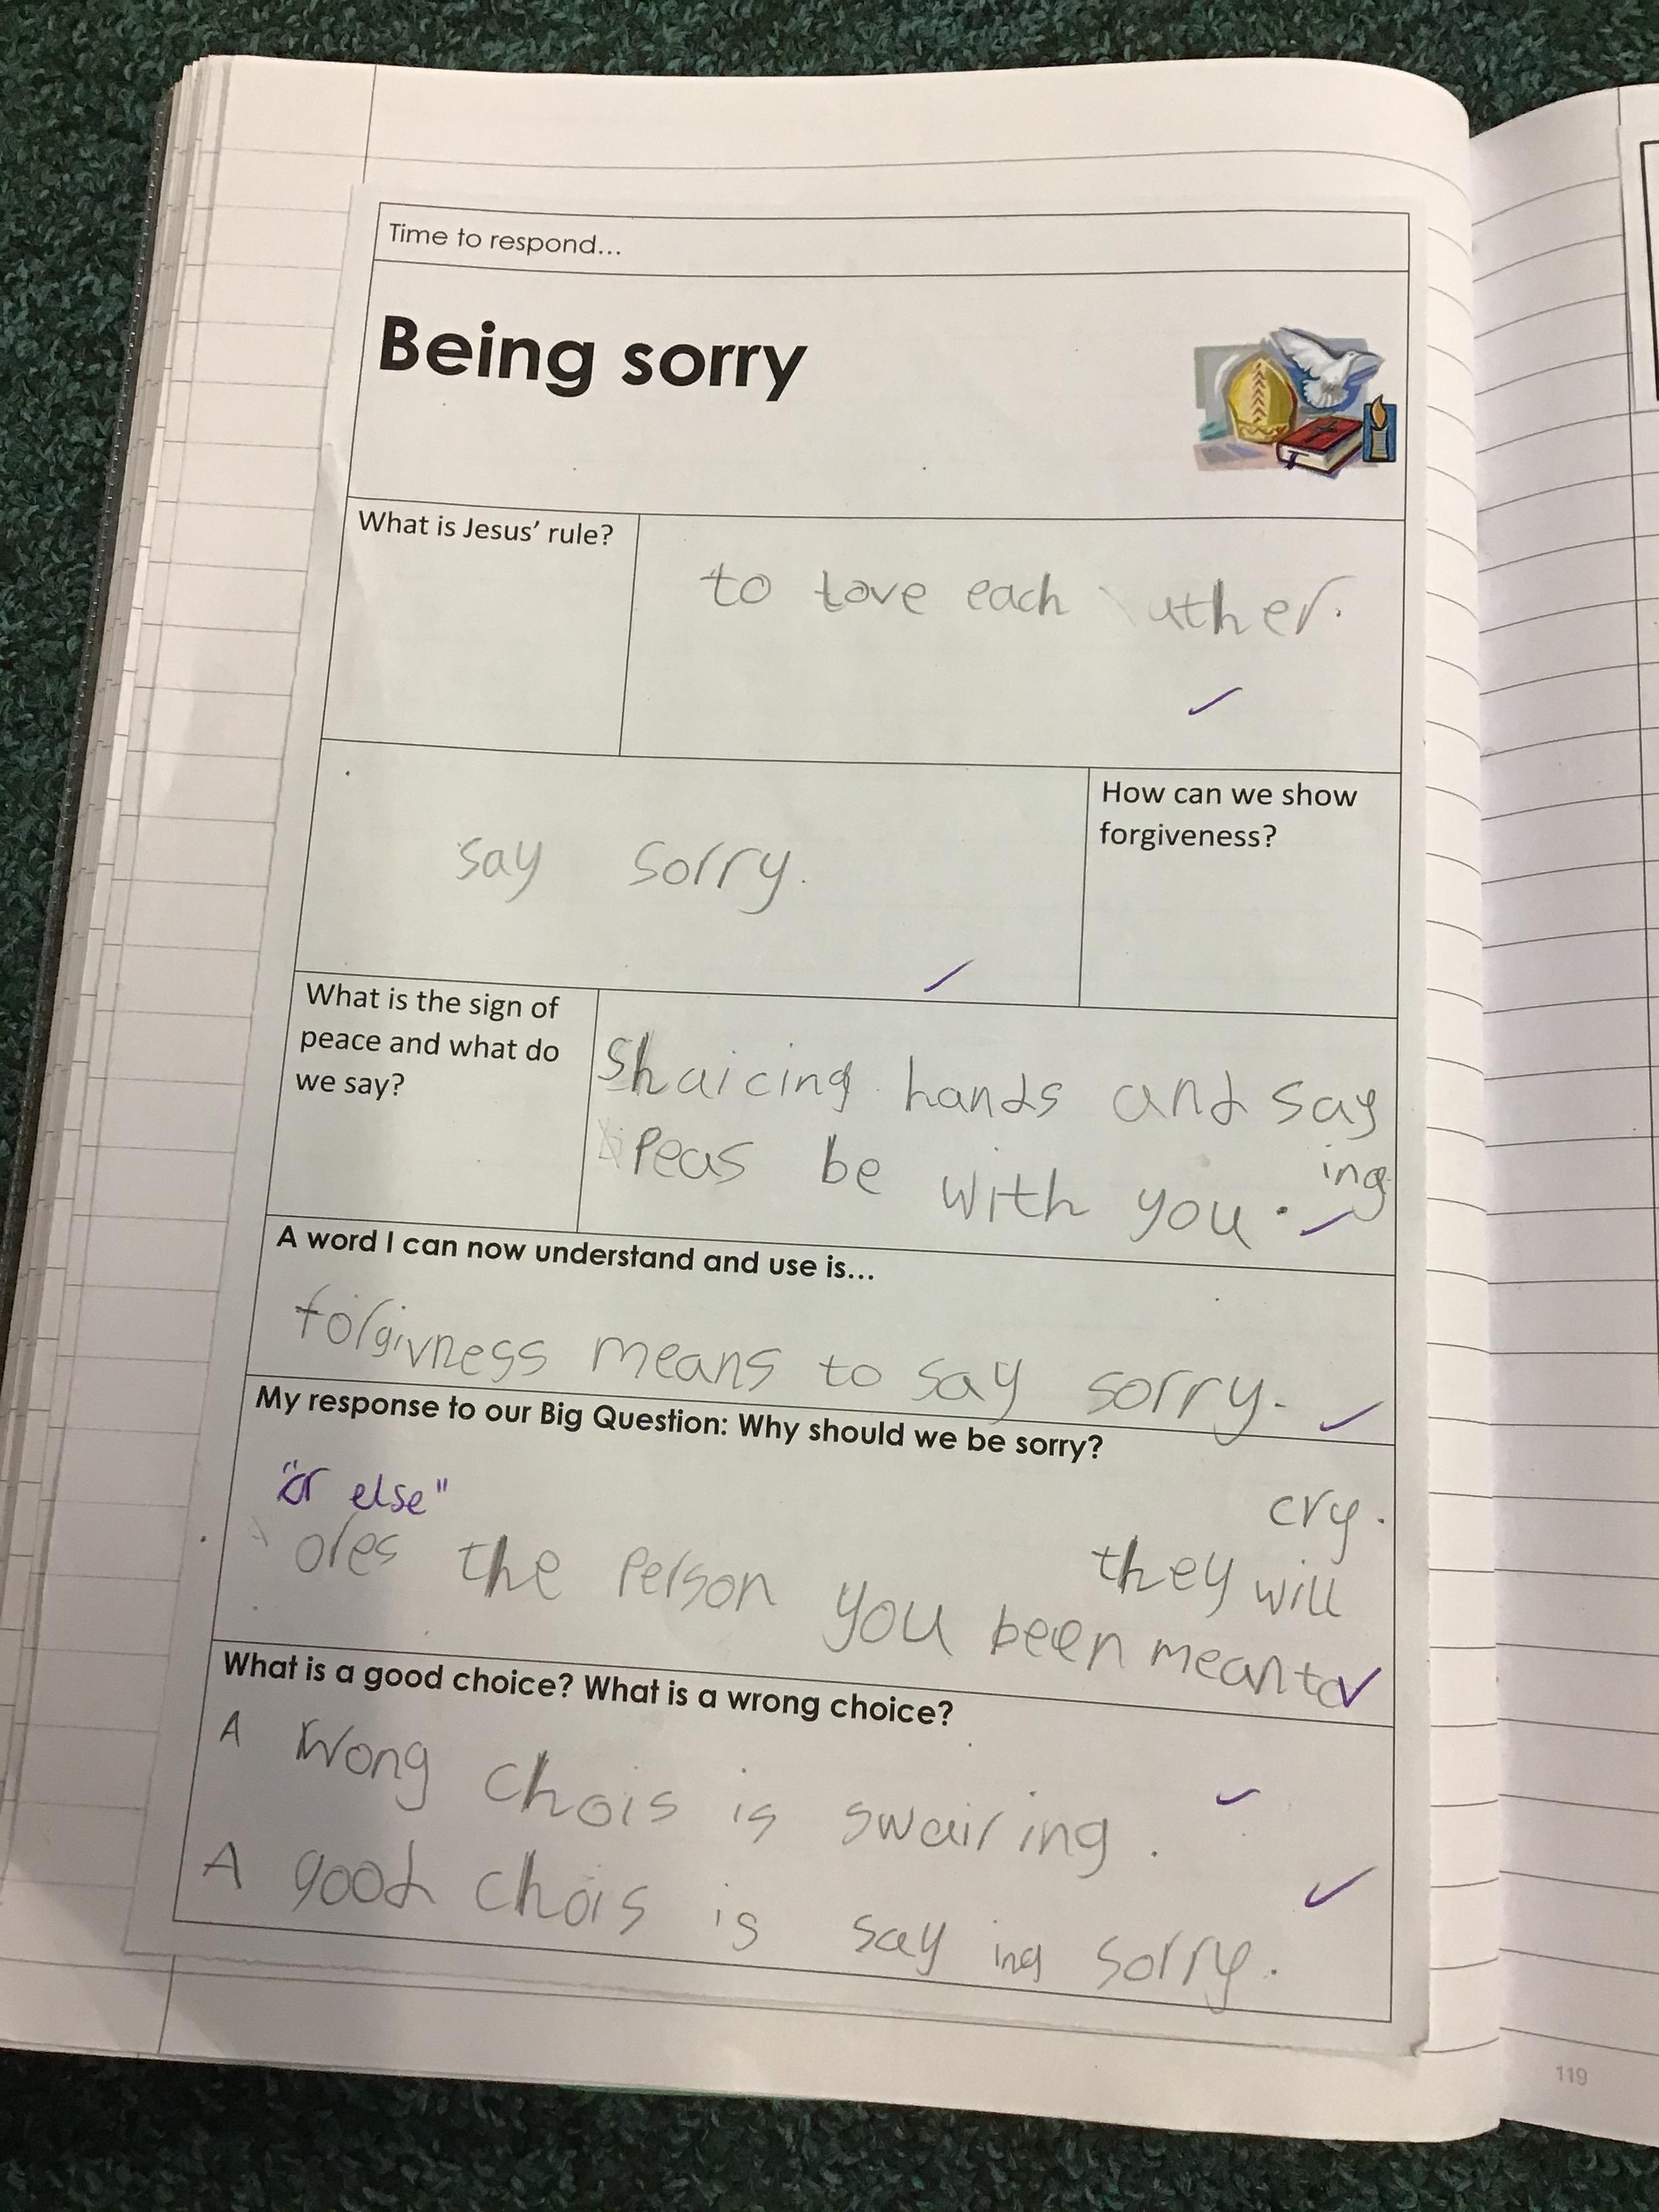 Time to respond...
Being sorry
What is Jesus' rule?
to love each uther.
say sorry.
How can we show
forgiveness?
What is the sign of
peace and what do
we say?
Shaicing hands and say
ing
Peas be with you.
A word I can now understand and use is...
forgivness means to say sorry.
My response to our Big Question: Why should we be sorry?
"or else"
ores the Person you been mean to
they will
cry.
What is a good choice? What is a wrong choice?
A Wong chois is swairing.
A good chois is saying sorry.
119